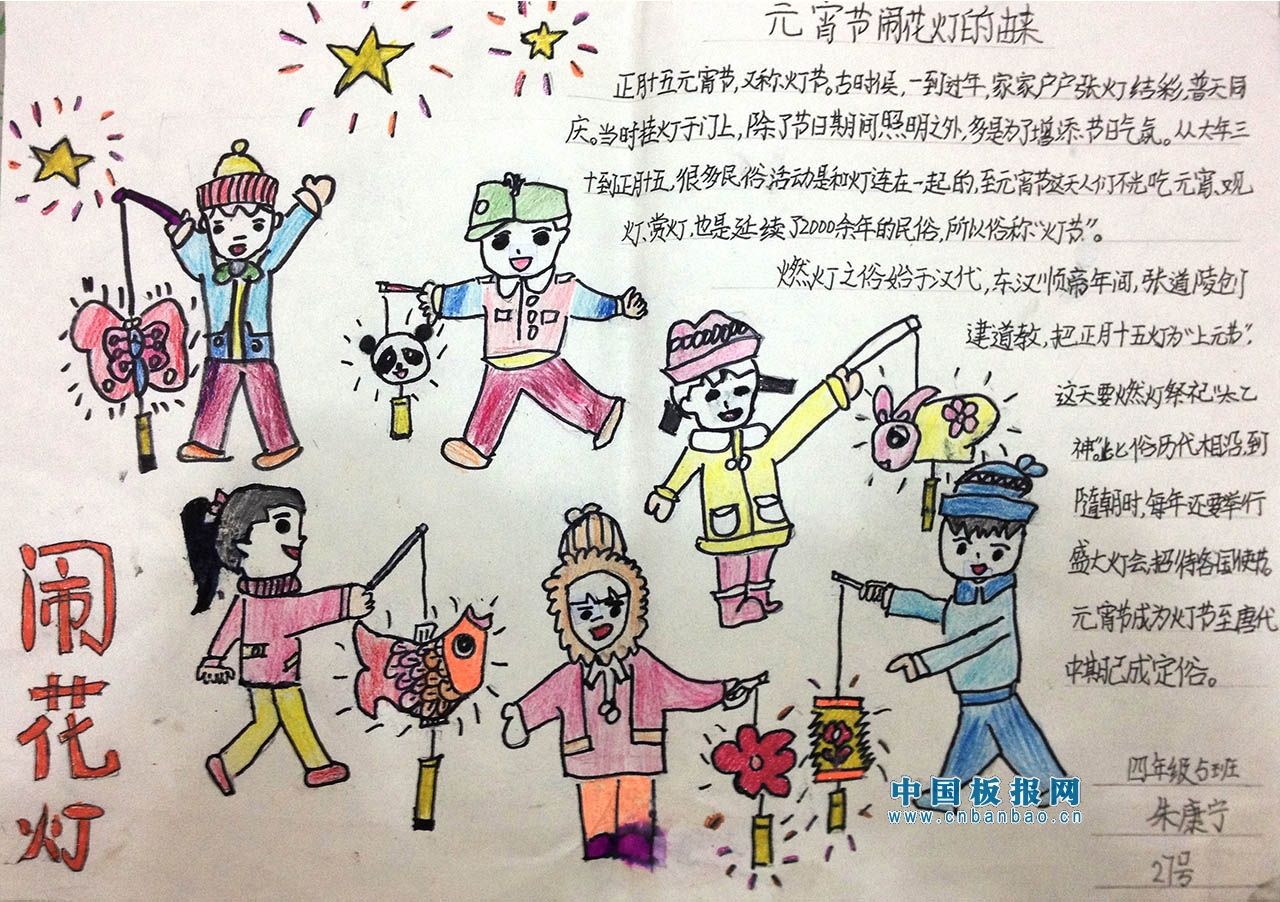 元宵节闹花灯的由来
正月十五元宵节,又称灯节。古时候,一到过年,家家户户张灯结彩,普天同
庆。当时挂灯于门上,除了节日期间照明之外,多是为了增添节日气氛。从大年三
十到正月十五,很多民俗活动是和灯连在一起的,至元宵节这天人们不光吃元宵、观
灯、赏灯,也是延续了2000余年的民俗,所以俗称“灯节”。
燃灯之俗始于汉代,东汉顺帝年间,张道陵创
建道教,把正月十五灯为“上元节”,
这天要燃灯祭祀“太乙
神”。此俗历代相沿,到
隋朝时,每年还要举行
盛大灯会,招待各国使节。
元宵节成为灯节至唐代
中期已成定俗。
闹花灯
四年级5班
朱康宁
27号
中国板报网
www.cnbanbao.cn